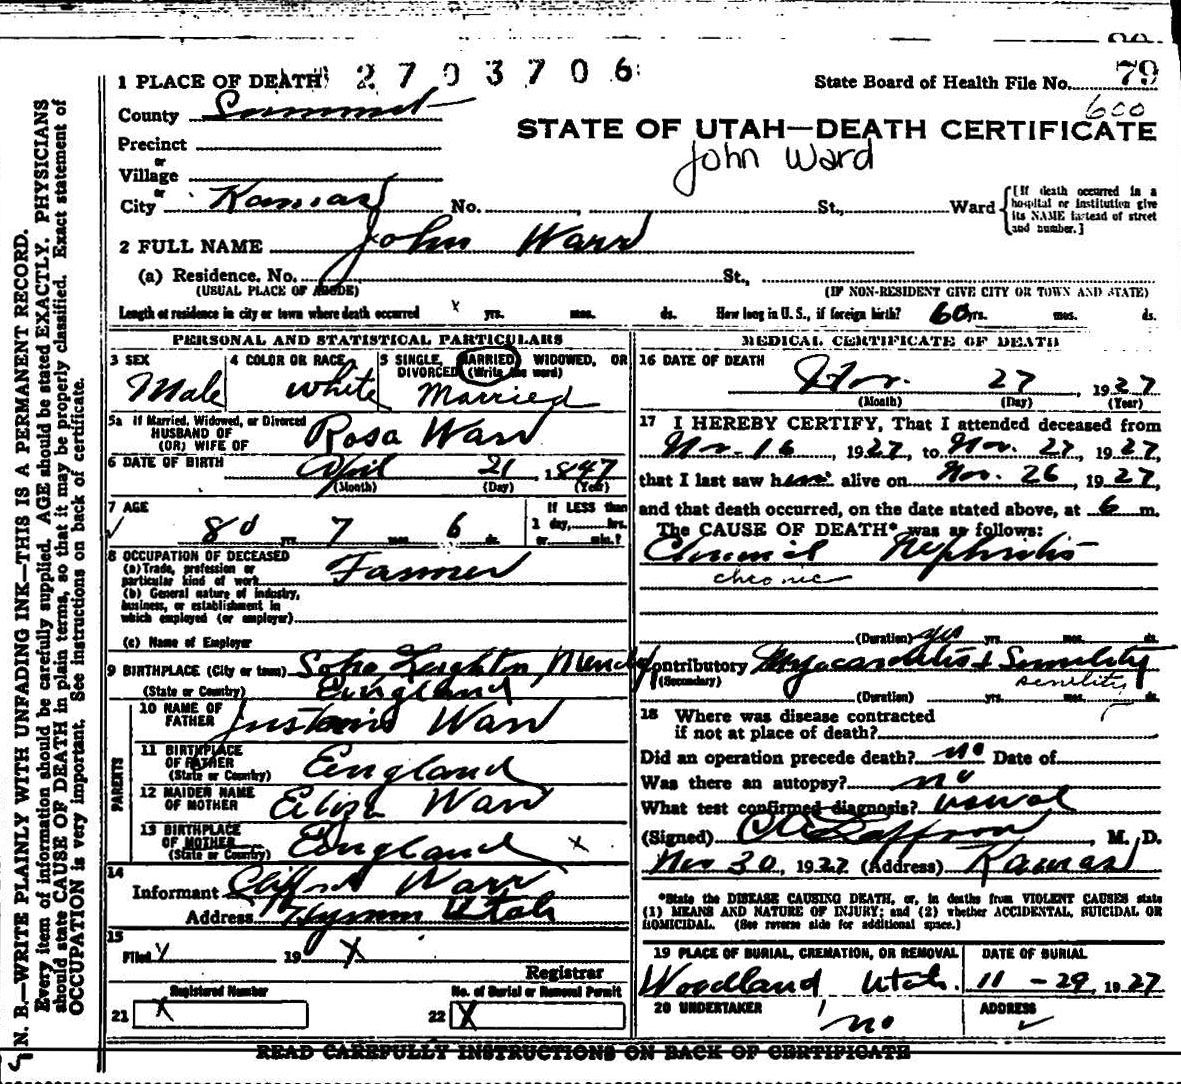 79
1 PLACE OF DEATH 2 7 0 3 7 0 6 State Board of Health File No.
600
County Summit
STATE OF UTAH—DEATH CERTIFICATE
John Ward
Precinct
or
Village
or
City Kamas No. , St., Ward
[If death occurred in a hospital or institution give its NAME instead of street and number.]
2 FULL NAME John Warr
(a) Residence. No. St.,
(USUAL PLACE OF ABODE) (IF NON-RESIDENT GIVE CITY OR TOWN AND STATE)
Length of residence in city or town where death occurred x yrs. mos. ds. How long in U. S., if foreign birth? 60 yrs. mos. ds.
PERSONAL AND STATISTICAL PARTICULARS
3 SEX
Male
4 COLOR OR RACE
White
5 SINGLE, MARRIED, WIDOWED, OR
DIVORCED (Write the word)
Married
5a If Married, Widowed, or Divorced
HUSBAND OF
(OR) WIFE OF
Rosa Warr
6 DATE OF BIRTH
April 21 1847
(Month) (Day) (Year)
7 AGE
80 yrs. 7 mos. 6 ds.
If LESS than
1 day, hrs.
or min.?
8 OCCUPATION OF DECEASED
(a) Trade, profession or
particular kind of work Farmer
(b) General nature of industry,
business, or establishment in
which employed (or employer)
(c) Name of Employer
9 BIRTHPLACE (City or town)
(State or Country) England
PARENTS
10 NAME OF
FATHER Warr
11 BIRTHPLACE
OF FATHER
(State or Country) England
12 MAIDEN NAME
OF MOTHER Eliza Warr
13 BIRTHPLACE
OF MOTHER
(State or Country) England x
14
Informant Clifford Warr
Address Utah
15
Filed 19 X
Registrar
Registered Number No. of Burial or Removal Permit
21 X 22 X
MEDICAL CERTIFICATE OF DEATH
16 DATE OF DEATH
Nov. 27 1927
(Month) (Day) (Year)
17 I HEREBY CERTIFY, That I attended deceased from
Nov. 16, 1927, to Nov. 27, 1927,
that I last saw him alive on Nov. 26, 1927,
and that death occurred, on the date stated above, at 6 m.
The CAUSE OF DEATH* was as follows:
Chronic Nephritis
chronic
(Duration) yrs yrs. mos. ds.
Contributory Myocarditis & Senility
(Secondary) senility
(Duration) yrs. mos. ds.
18 Where was disease contracted
if not at place of death?
Did an operation precede death? no Date of
Was there an autopsy? no
What test confirmed diagnosis? usual
(Signed) , M. D.
Nov 30, 1927 (Address) Kamas
*State the DISEASE CAUSING DEATH, or, in deaths from VIOLENT CAUSES state
(1) MEANS AND NATURE OF INJURY; and (2) whether ACCIDENTAL, SUICIDAL OR
HOMICIDAL. (See reverse side for additional space.)
19 PLACE OF BURIAL, CREMATION, OR REMOVAL
Woodland Utah.
DATE OF BURIAL
11 - 29, 1927
20 UNDERTAKER
no
ADDRESS
READ CAREFULLY INSTRUCTIONS ON BACK OF CERTIFICATE
N. B.—WRITE PLAINLY WITH UNFADING INK—THIS IS A PERMANENT RECORD.
Every item of information should be carefully supplied. AGE should be stated EXACTLY. PHYSICIANS
should state CAUSE OF DEATH in plain terms, so that it may be properly classified. Exact statement of
OCCUPATION is very important. See instructions on back of certificate.